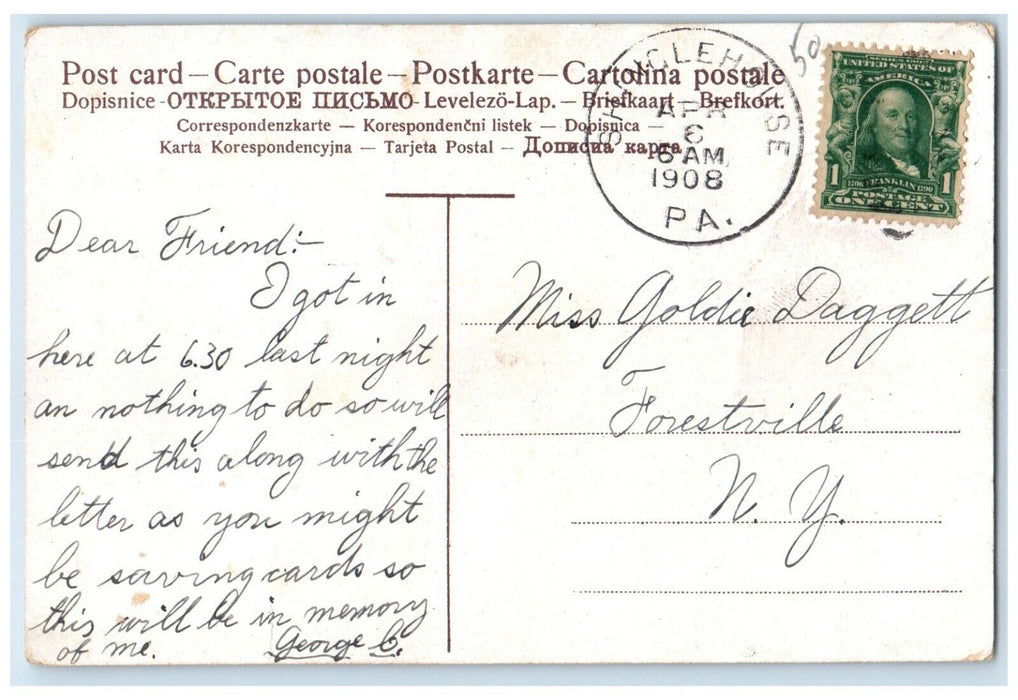 Post card – Carte postale – Postkarte – Cartolina postale
Dopisnice - ОТКРЫТОЕ ПИСЬМО - Levelezö-Lap. – Briefkaart – Brefkort.
Correspondenzkarte – Korespondenčni listek – Dopisnica –
Karta Korespondencyjna – Tarjeta Postal – Дописна карта
SHINGLEHOUSE
APR
6
6 AM
1908
PA.
50
SERIES 1902
UNITED STATES OF
AMERICA
1 1
1706 FRANKLIN 1790
POSTAGE
ONE CENT
Dear Friend:–
I got in
here at 6.30 last night
an nothing to do so will
send this along with the
letter as you might
be saving cards so
this will be in memory
of me. George C.
Miss Goldie Daggett
Forestville
N. Y.